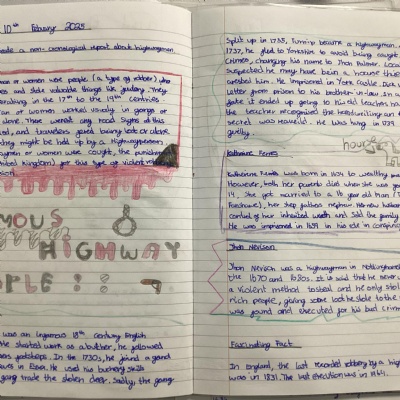 10th February 2025
a non-chronological report about highwaymen
or women were people (a type of robber) who
and stole valuable things like jewellery. They
in the 17th to the 19th centuries.
or women worked usually in gangs or
alone. There weren't any road signs at this
and travellers feared being lost or alone
they might be held up by a Highwayperson.
or women were caught, the punishment
Kingdom) for this type of violent
HIGHWAY
was an infamous 18th century English
He started work as a butcher, he followed
footsteps. In the 1730s, he joined a gang
in Essex. He used his butchery skills
gang trade the stolen deer. Sadly, the gang
Split up in 1735, Turpin became a highwayman.
1737, he fled to Yorkshire to avoid being caught
Crimes, changing his name to John Palmer.
suspected he may have been a house thief
arrested him. He imprisoned in York Castle. Dick
letter from prison to his brother-in-law. In
gate it ended up going to his old teachers
the teacher recognised the handwriting and
secret was revealed. He was hung in 1739
guilty.
Katherine Ferrers
Katherine Ferrers was born in 1634 to wealthy
However, both her parents died when she was young
14. She got married to a 16 year old man
Fanshawe), her step fathers nephew. Her new husband
control of her inherited wealth and sold the family
He was imprisoned in 1659 for his role in
Jhon Nevison
Jhon Nevison was a Highwayman in Nottinghamshire
the 1670 and 1680s. It is said that he never
a violent method to steal and he only stole
rich people, giving some loot he stole to the
was found and executed for his bad crimes
Fascinating Fact
In England, the last recorded robbery by a
was in 1831. The last execution was in 1964.